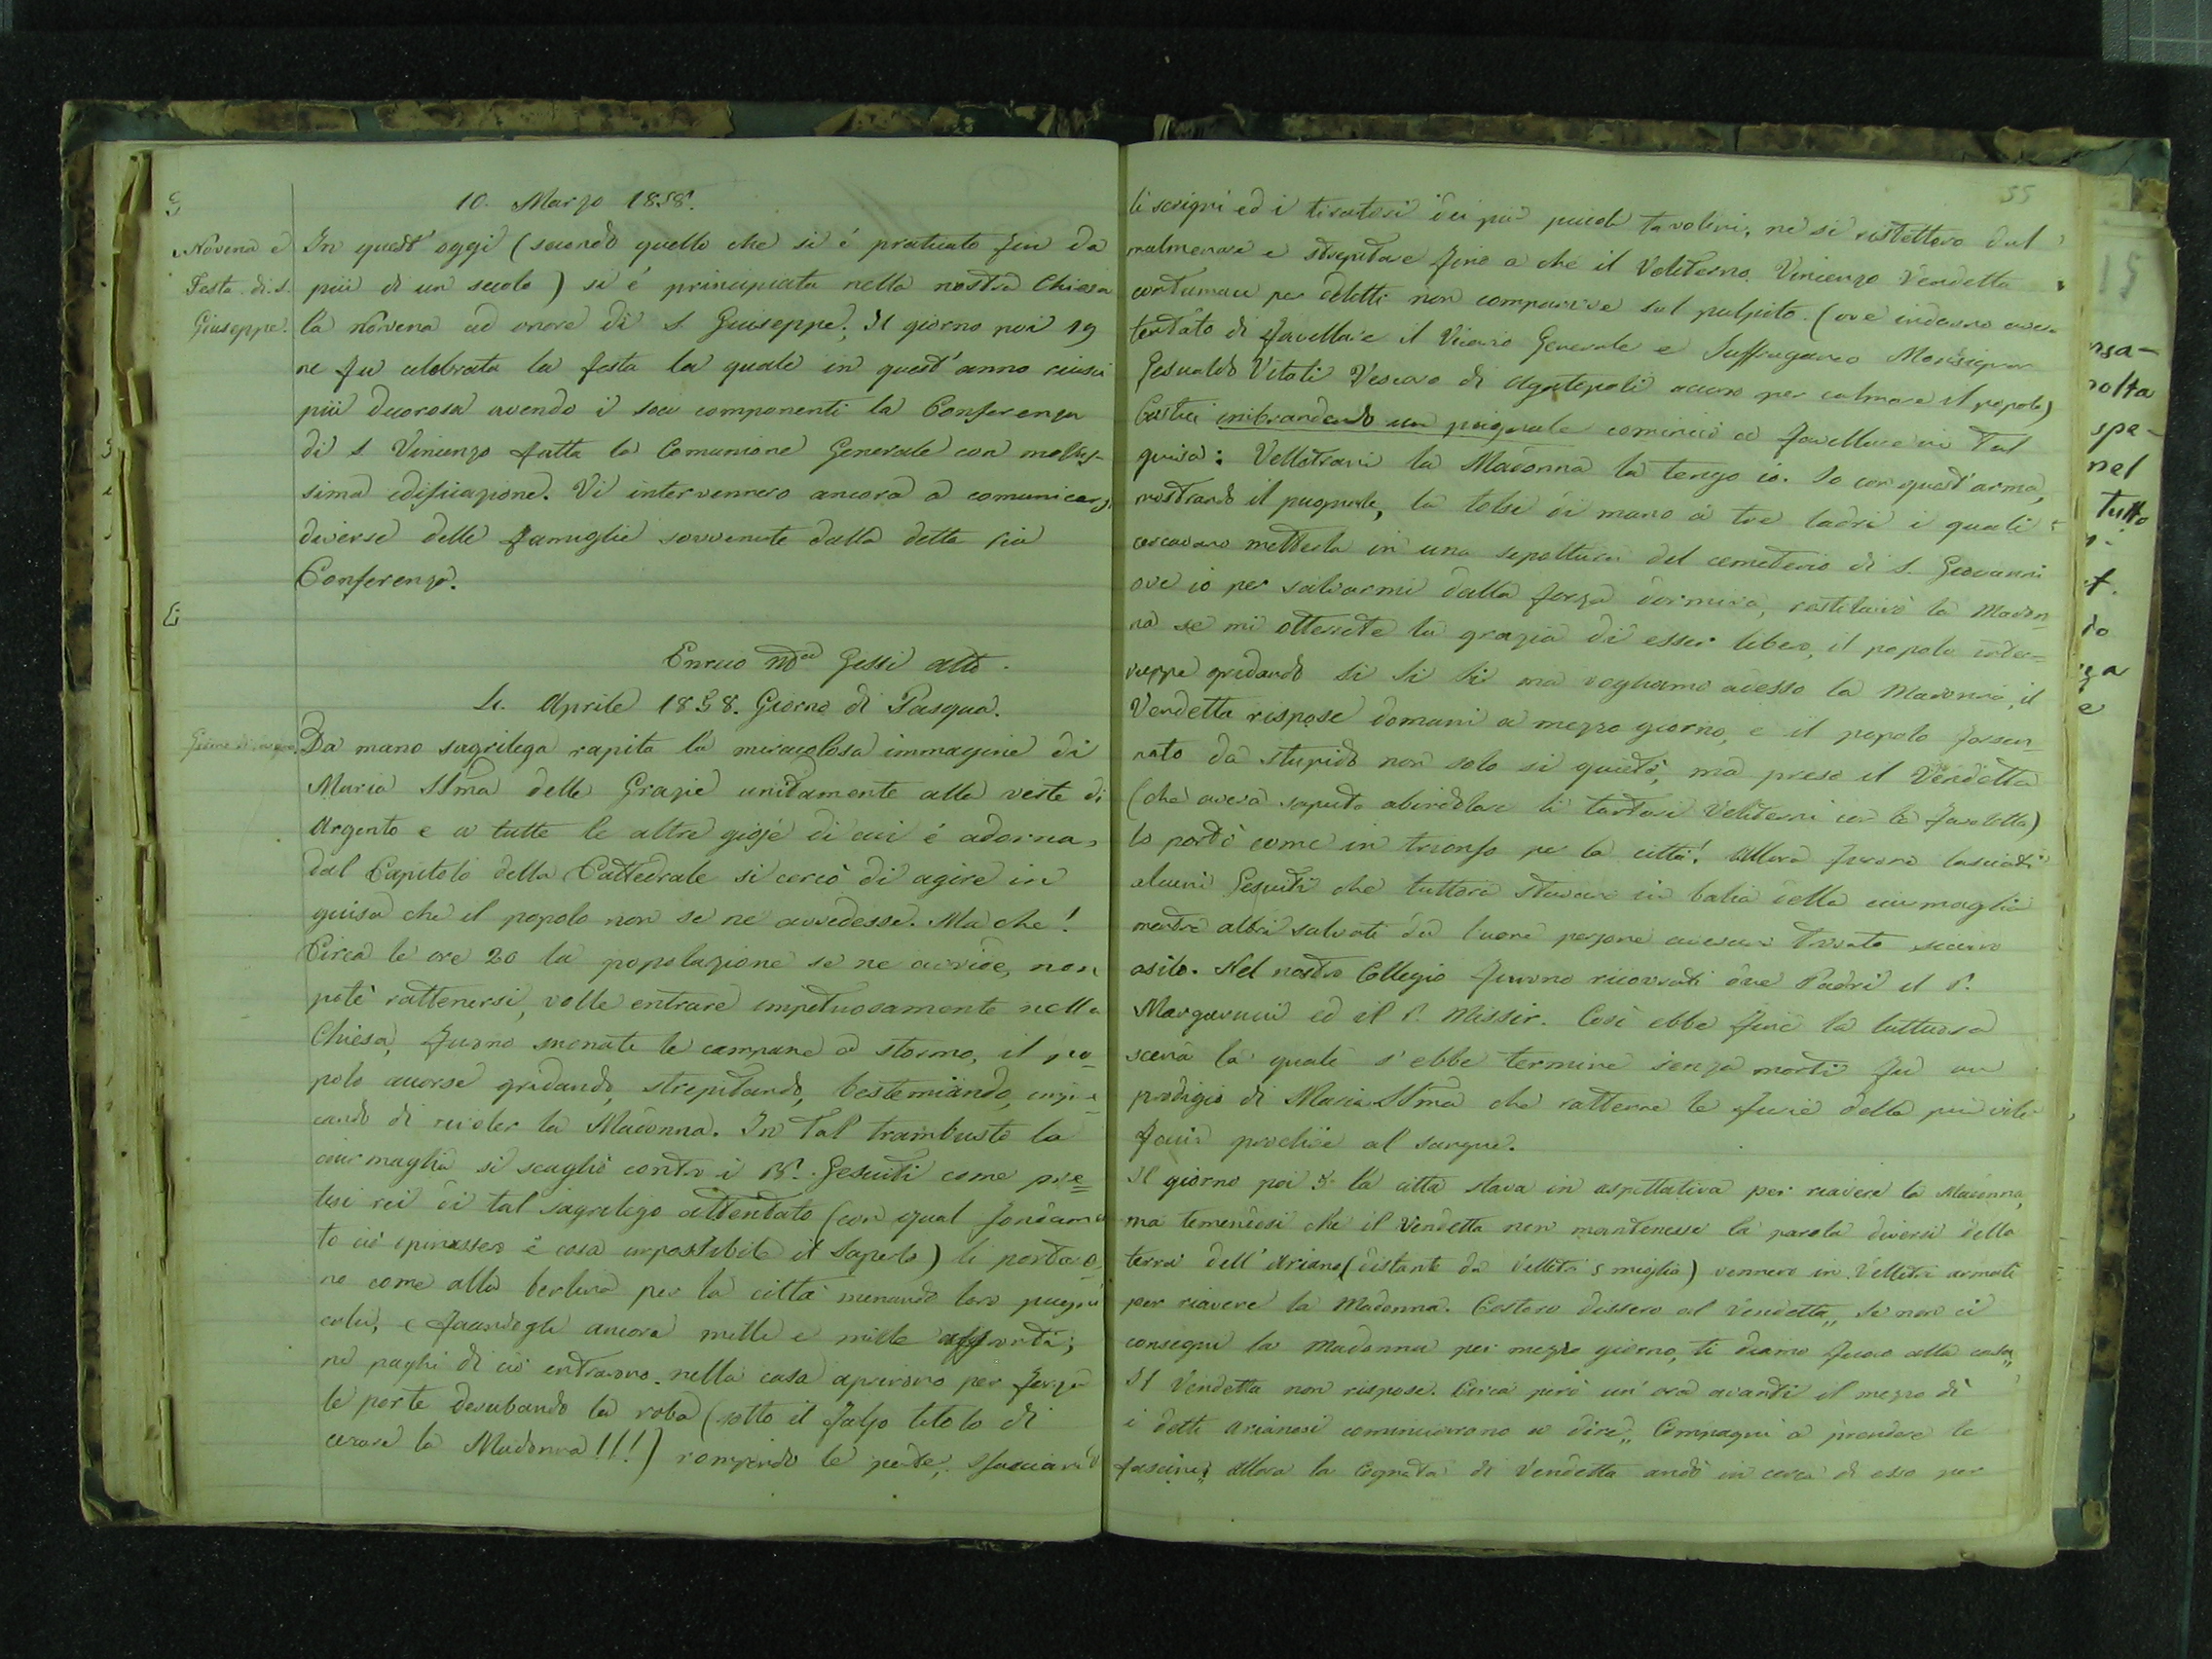 10. Marzo 1858.
Novena e
Festa di S.
Giuseppe.
In quest'oggi (secondo quello che si é praticato fin da
più di un secolo) si é principiata nella nostra Chiesa
la novena ad onore di S. Giuseppe; Il giorno poi 19
ne fu celebrata la festa la quale in quest'anno riuscì
più decorosa avendo i soci componenti la Conferenza
di S. Vincenzo fatta la Comunione Generale con moltis-
sima edificazione. Vi intervennero ancora a comunicarsi
diverse delle famiglie sovvenute dalla detta pia
Conferenza.
Enrico Gessi atto.
4. Aprile 1858. Giorno di Pasqua.
Da mano sagrilega rapita la miracolosa immagine di
Maria SSma delle Grazie unitamente alla veste di
Argento e a tutte le altre gioje di cui é adorna,
dal Capitolo della Cattedrale si cercò di agire in
guisa che il popolo non se ne avvedesse. Ma che!
Circa le ore 20 la popolazione se ne avvide, non
poté rattenersi, volle entrare impetuosamente nella
Chiesa, furono suonate le campane a stormo, il po=
polo accorse gridando, strepitando, bestemiando,
cando di rivoler la Madonna. In tal trambusto la
ciurmaglia si scagliò contro i PP. Gesuiti come pre=
tesi rei di tal sagrilego attentato (con qual fondamen
to ciò opinassero é cosa impossibile il saperlo) li portaro=
no come alla berlina per la città menando loro pugni
calci, e facendogli ancora mille e mille affronti;
né paghi di ciò entrarono nella casa aprirono per forza
le porte derubando la roba (sotto il falso titolo di
cercare la Madonna!!!) rompendo le porte, sfasciando
55
li scrigni ed i tiratori dei più piccoli tavolini, né si ristettero dal
malmenare e strepitare fino a che il Veliterno Vincenzo Vendetta
contumace per delitti non comparisse sul pulpito (ove indarno avea
tentato di favellare il Vicario Generale e Suffraganeo Monsignor
Gesualdo Vitali Vescovo di Agatopoli accorso per calmare il popolo)
Costui imbrandendo un pugnale cominciò a favellare in tal
guisa: Velletrani la Madonna la tengo io. Io con quest'arma,
mostrando il pugnale, la tolsi di mano a tre ladri i quali
cercavano metterla in una sepoltura del cemeterio di S. Giovanni
ove io per salvarmi dalla forza dormiva, restituirò la Madon=
na se mi otterrete la grazia di esser libero, il popolo inter=
ruppe gridando si si si ma vogliamo adesso la Madonna, il
Vendetta rispose domani a mezzo giorno, e il popolo forsen=
nato da stupido non solo si quietò, ma prese il Vendetta
(che aveva saputo abindolare li tartari Veliterni con la favoletta)
lo portò come in trionfo per la città! Allora furono lasciati
alcuni Gesuiti che tuttora stavano in balia della ciurmaglia
mentre altri salvati da buone persone avevano trovato sicuro
asilo. Nel nostro Collegio furono ricovrati due Padri il P.
Margarucci ed il P. Missir. Così ebbe fine la luttuosa
scena la quale s'ebbe termine senza morti fu un
prodigio di Maria SSma che rattenne le furie della più vile
proclive al sangue.
Il giorno poi 5 la città stava in aspettativa per riavere la Madonna,
ma temendosi che il Vendetta non mantenesse la parola diversi della
terra dell'Ariano (distante da Velletri 5 miglia) vennero in Velletri armati
per riavere la Madonna. Costoro dissero al Vendetta „ Se non ci
consegni la Madonna per mezzo giorno, ti diamo fuoco alla casa„
Il Vendetta non rispose. Circa però un'ora avanti il mezzo dì
i detti Arianesi cominciarono a dire „ Compagni a prendere le
fascine„ allora la Cognata di Vendetta andò in cerca di esso per
15
nsa-
nolta
spe-
nel
tutto